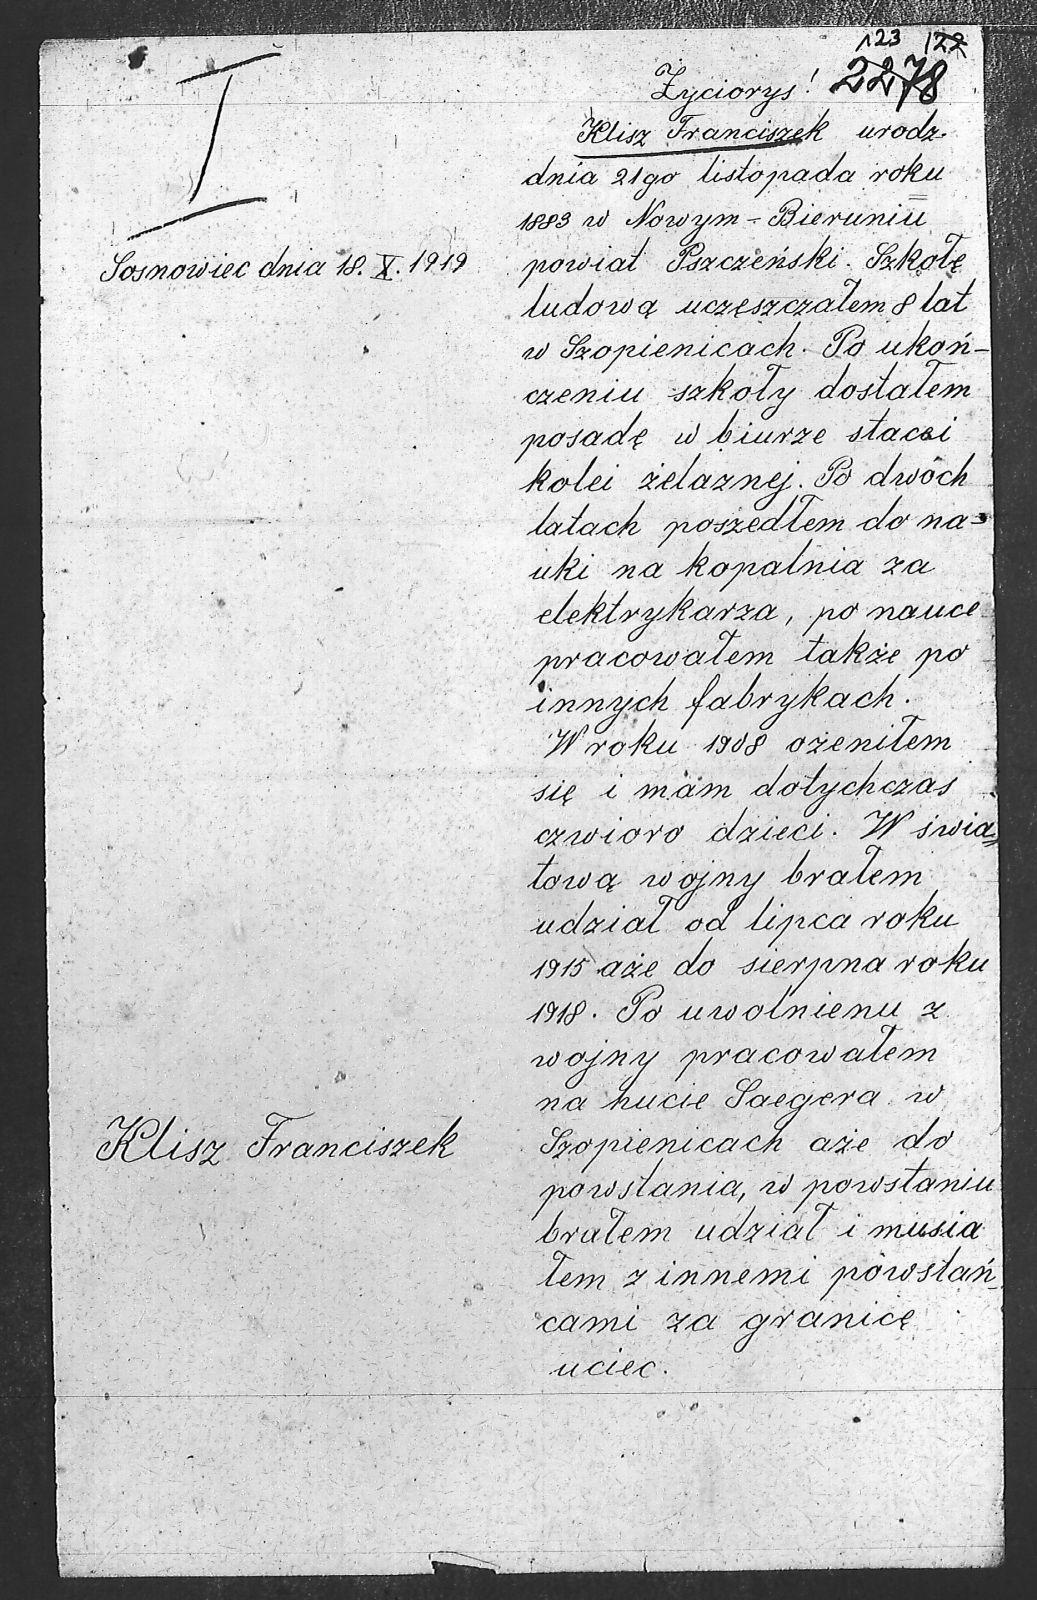 123 122
2278
I
Życiorys!
Klisz Franciszek urodz.
dnia 21go listopada roku
1883 w Nowym - Bieruniu
Sosnowiec dnia 18. X. 1919
powiat Pszczeński. Szkołę
ludową uczęszczałem 8 lat
w Szopienicach. Po ukoń-
czeniu szkoły dostałem
posadę w biurze stacji
kolei żelaznej. Po dwóch
latach poszedłem do na-
uki na kopalnia za
elektrykarza, po nauce
pracowałem także po
innych fabrykach.
W roku 1908 ożeniłem
się i mam dotychczas
czwioro dzieci. W świa-
tową wojny brałem
udział od lipca roku
1915 aże do sierpna roku
1918. Po uwolnienu z
wojny pracowałem
na hucie Saegera w
Klisz Franciszek
Szopienicach aże do
powstania, w powstaniu
brałem udział i musia
łem z innemi powstań-
cami za granicę
uciec.